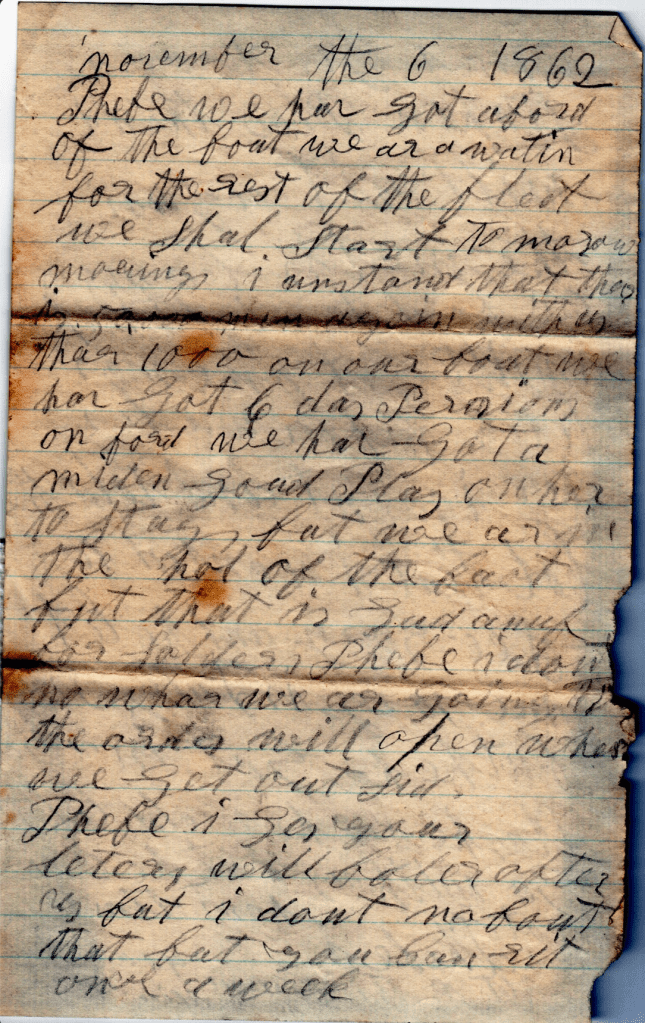 november the 6 1862
Phebe we har Got abord
of the boat we ar a watin
for the rest of the fleet
we Shal Start to morow
morning i unstand that thar
is men again with us
thar 1000 on our boat we
har Got 6 day
on bord we har Got a
miden Goud Plas on her
to Stay but we ar in
the hol of the boat
but that is Gud anuf
for Solders Phebe i don
no whar we ar Going to
the orders will open when
we Get out Sid.
Phebe i Ges your
leters will after
us but i dont no bout
that but you Can rit
once a week